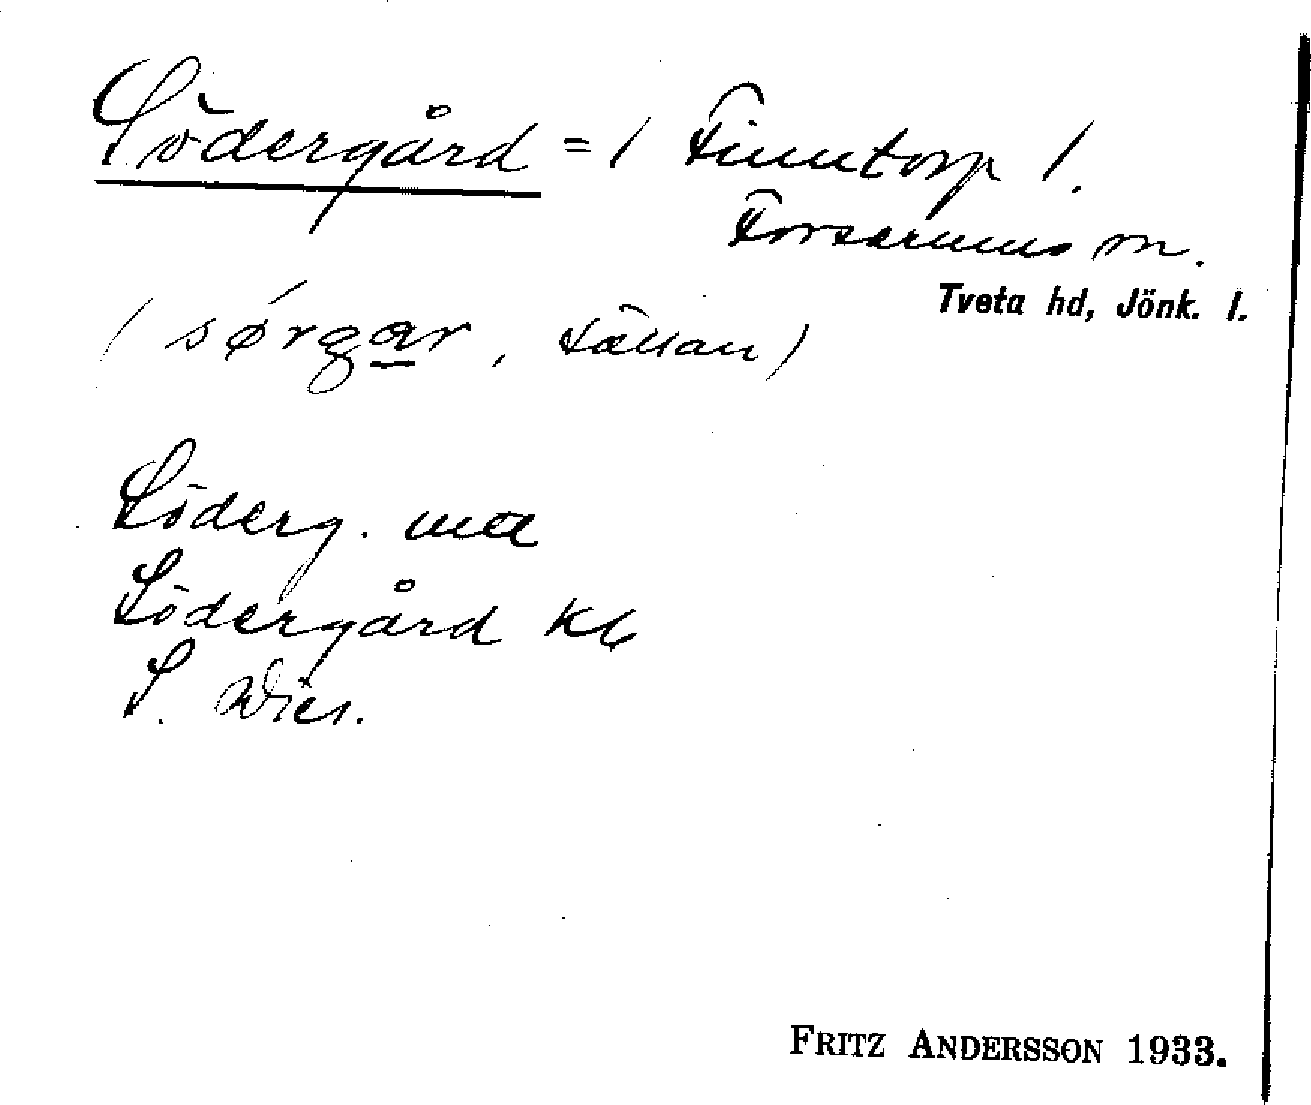 Södergård = / Finntorp /.
Forserums sn.
Tveta hd, Jönk. l.
(sørgar, sällan)
Söderg.
Södergård Kb
S. Wies.
FRITZ ANDERSSON 1933.